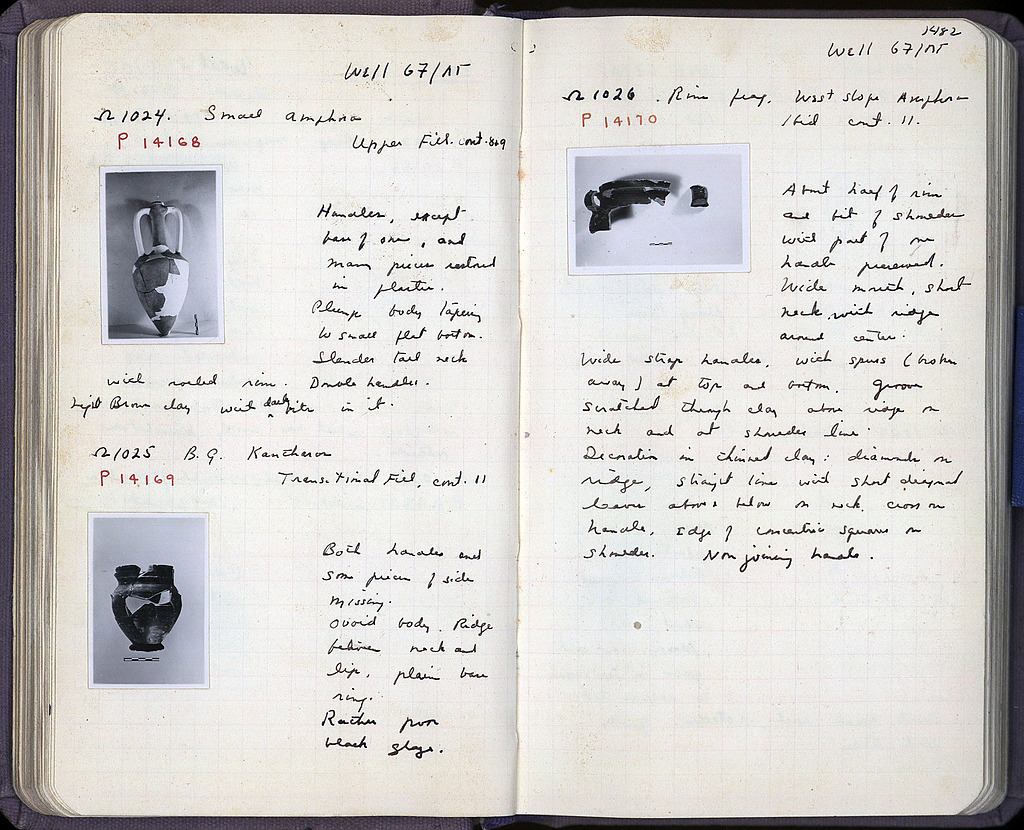 Well 67/ΛΓ
Ω 1024. Small amphora
P 14168 Upper Fill. cont. 8+9
Handles, except
base of one, and
many pieces restored
in plaster.
Plump body tapering
to small flat bottom.
Slender tall neck
with rolled rim. Double handles.
Light Brown clay with dark bits in it.
Ω 1025 B.G. Kantharos
P 14169 Transitional Fill, cont. 11
Both handles and
some pieces of side
missing.
Ovoid body. Ridge
between neck and
lip, plain base
ring.
Rather poor
black glaze.
1482
Well 67/ΛΓ
Ω 1026. Rim frag. West slope Amphora
P 14170 Ibid cont. 11.
About half of rim
and bit of shoulder
with part of one
handle preserved.
Wide mouth, short
neck, with ridge
around center.
Wide strap handles, with spurs (broken
away) at top and bottom. Groove
scratched through clay above ridge on
neck and at shoulder line.
Decoration in thinned clay: diamonds on
ridge, straight line with short diagonal
leaves above & below on neck, cross on
handle, edge of concentric squares on
shoulder. Non joining handle.